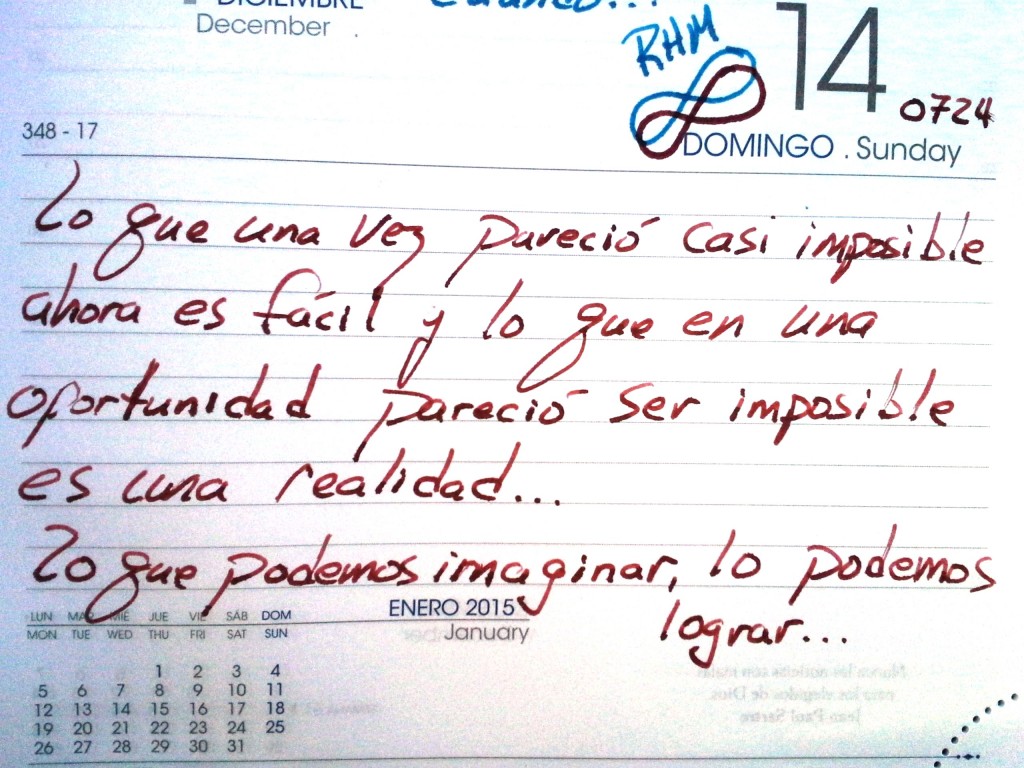 DICIEMBRE
December .
cuánto...
RHM
14
0724
348 - 17
DOMINGO . Sunday
Lo que una vez pareció casi imposible
ahora es fácil y lo que en una
oportunidad pareció ser imposible
es una realidad...
Lo que podemos imaginar, lo podemos
lograr...
ENERO 2015
January
LUN MAR MIE JUE VIE SÁB DOM
MON TUE WED THU FRI SAT SUN
1 2 3 4
5 6 7 8 9 10 11
12 13 14 15 16 17 18
19 20 21 22 23 24 25
26 27 28 29 30 31